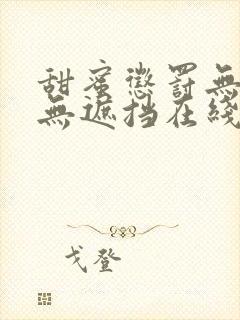 甜蜜懲罰無
無遮挡在綫
戈登